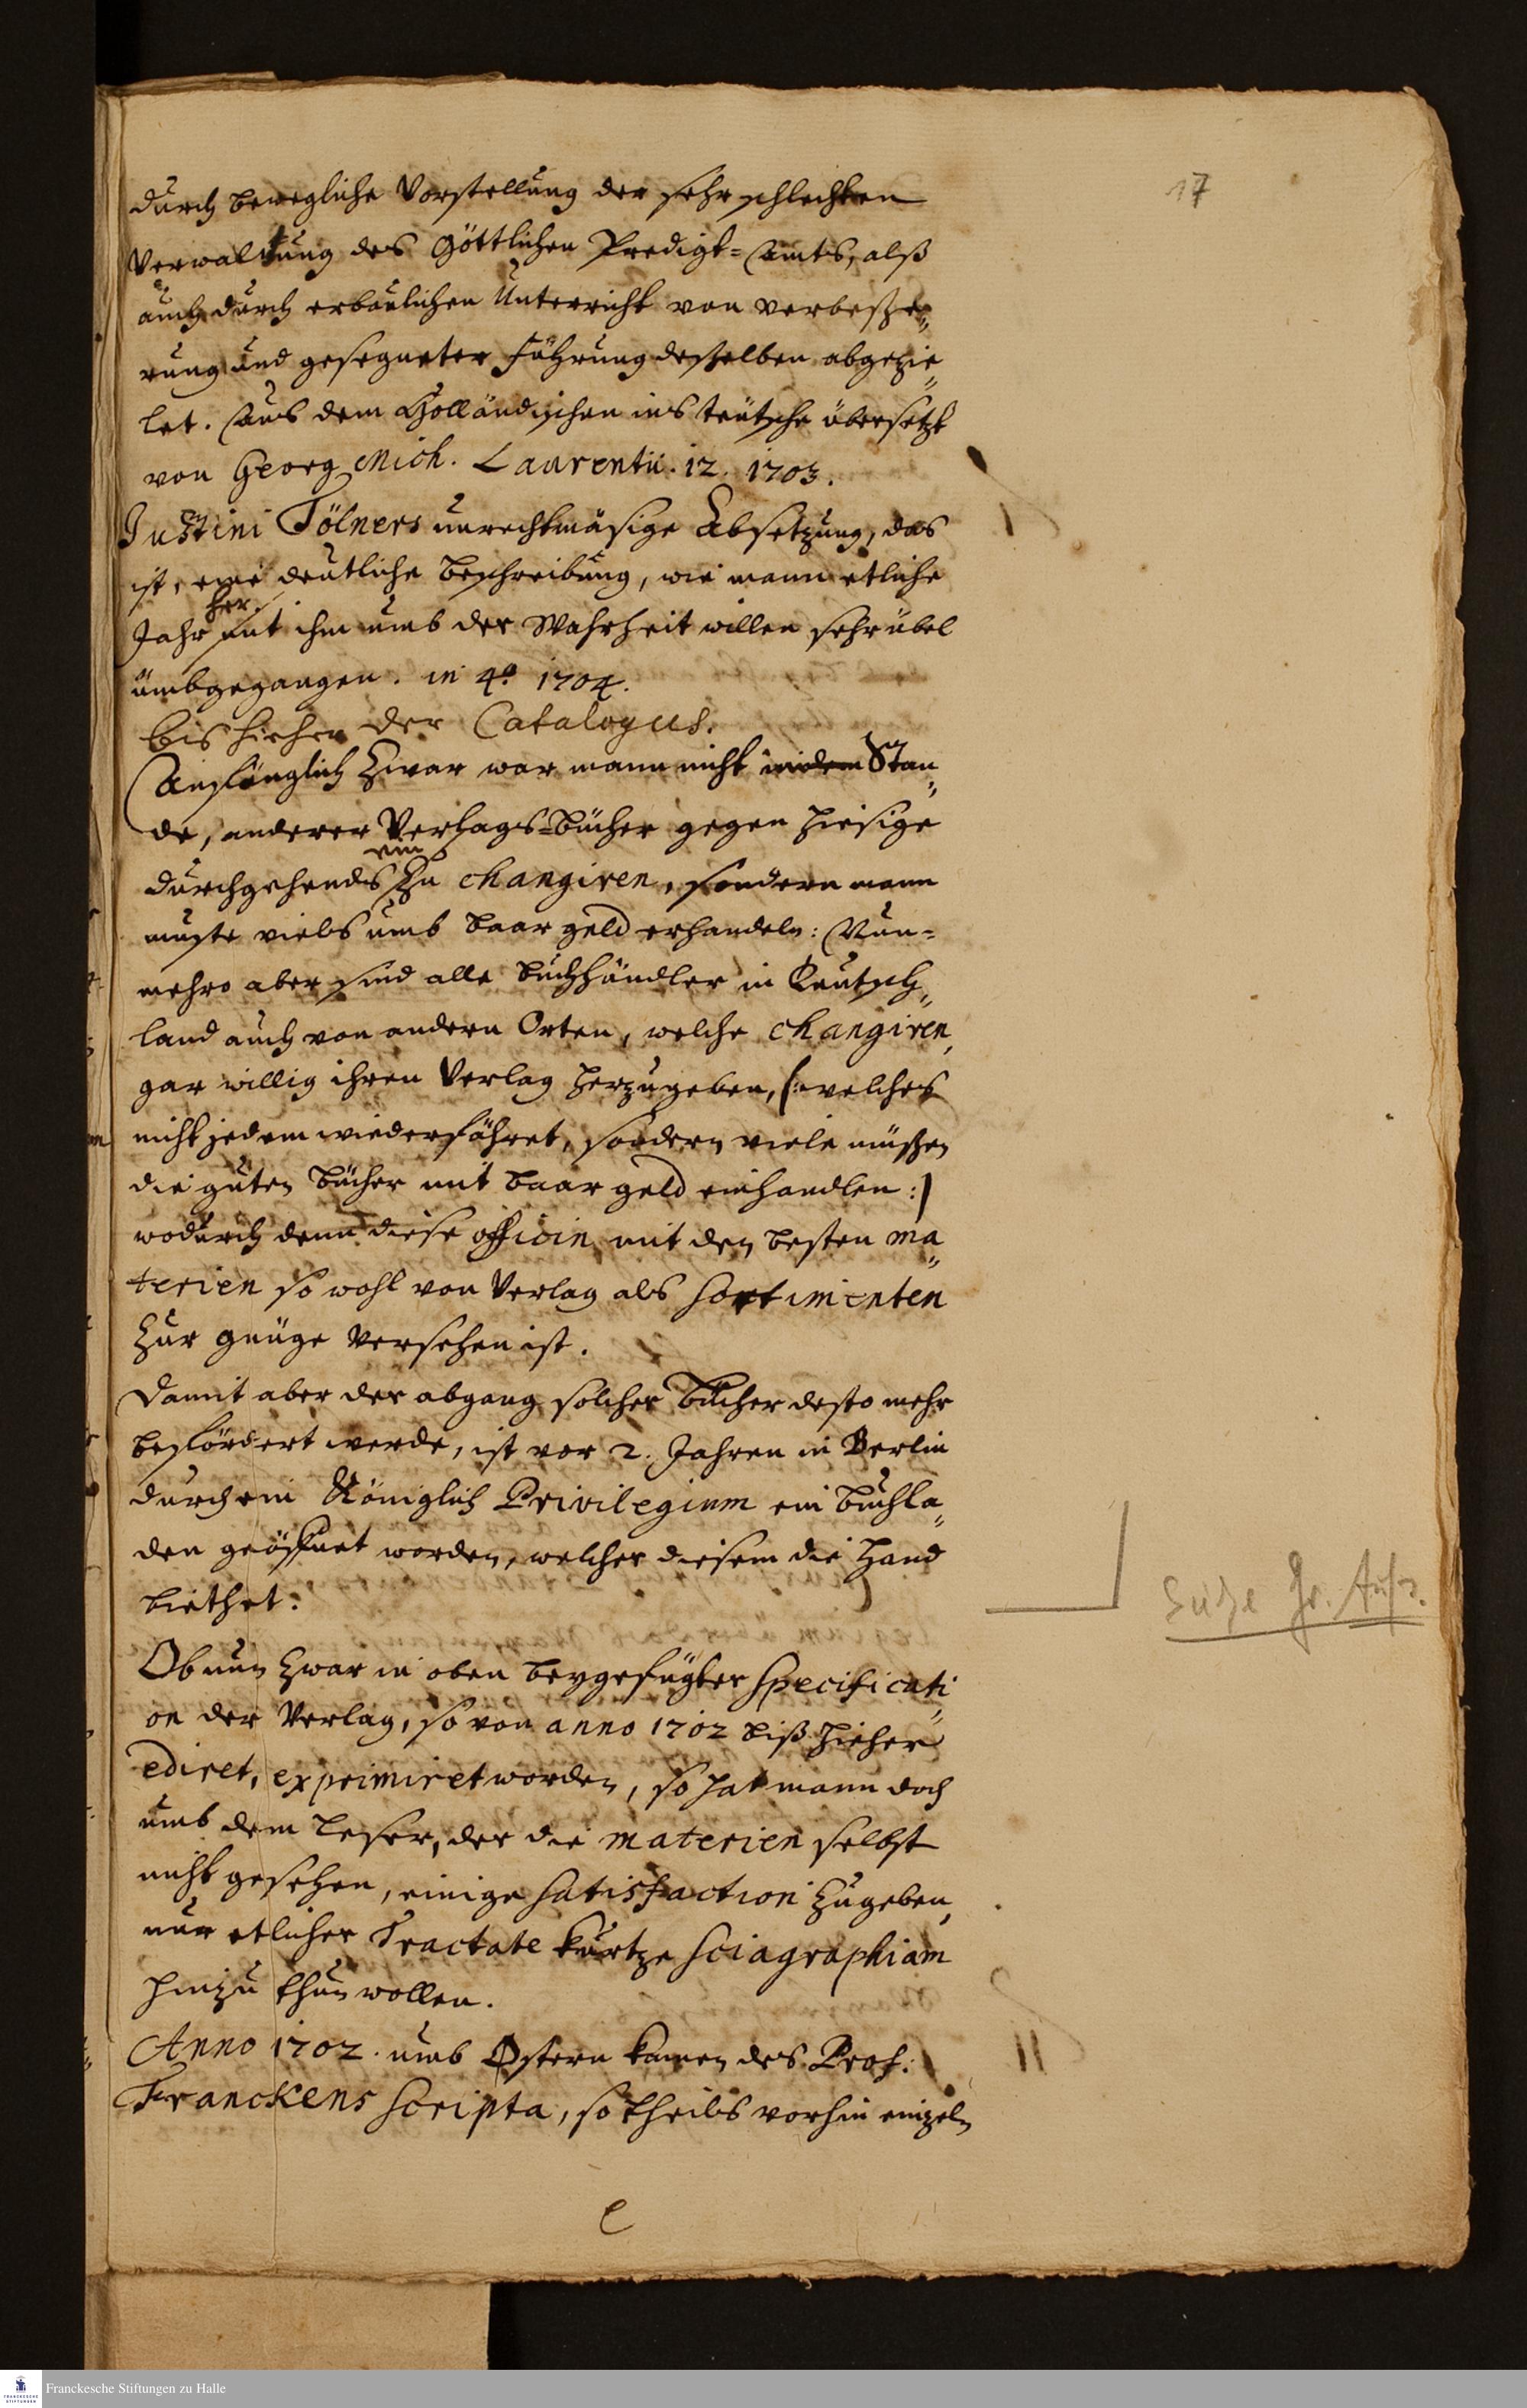 17
durch bewegliche Vorstellung der sehr schlechten
Verwaltung des Göttlichen Predigt-Amts, alß
auch durch erbaulichen Unterricht von verbeße„
rung und gesegneter Führung deßelben abgezie„
let. Aus dem Holländischen ins teutsche übersetzt
von Georg Mich. Laurentii. 12. 1703.
Justini Tölners unrechtmäsige Absetzung, das
ist, eine deutliche beschreibung, wie mann etliche
her
Jahr mit ihm umb der Wahrheit willen sehr übel
ümbgegangen. in 4o 1704.
bis hieher der Catalogus.
Anfänglich zwar war mann nicht in dem Stan„
de, anderer Verlags-bücher gegen hiesige
ein
durchgehends zu changiren, sondern mann
muste viels umb baar geld erhandeln: Nun-
mehro aber sind alle buchhändler in Teutsch„
land auch von andern Orten, welche changiren,
gar willig ihren Verlag herzugeben, (: welches
nicht jedem wiederfähret, sondern viele müßen
die guten bücher mit baar geld einhandlen :)
wodurch denn diese officin mit den besten ma„
terien so wohl von Verlag als Sortimenten
zur gnüge versehen ist.
Damit aber der abgang solcher bücher desto mehr
befördert werde, ist vor 2. Jahren in Berlin
durch ein Königlich Privilegium ein buchla„
den geöffnet worden, welcher diesem die Hand
biethet.
Ob nun zwar in oben beygefügter Specificati„
on der Verlag, so von anno 1702 biß hieher
ediret, exprimiret worden, so hat mann doch
umb dem leser, der die materien selbst
nicht gesehen, einige Satisfaction zugeben,
nur etlicher Tractate kurtze Sciagraphiam
hinzu thun wollen.
Anno 1702. umb Ostern kamen des Prof.
Franckens Scripta, so theils vorhin einzeln
e
Franckesche Stiftungen zu Halle